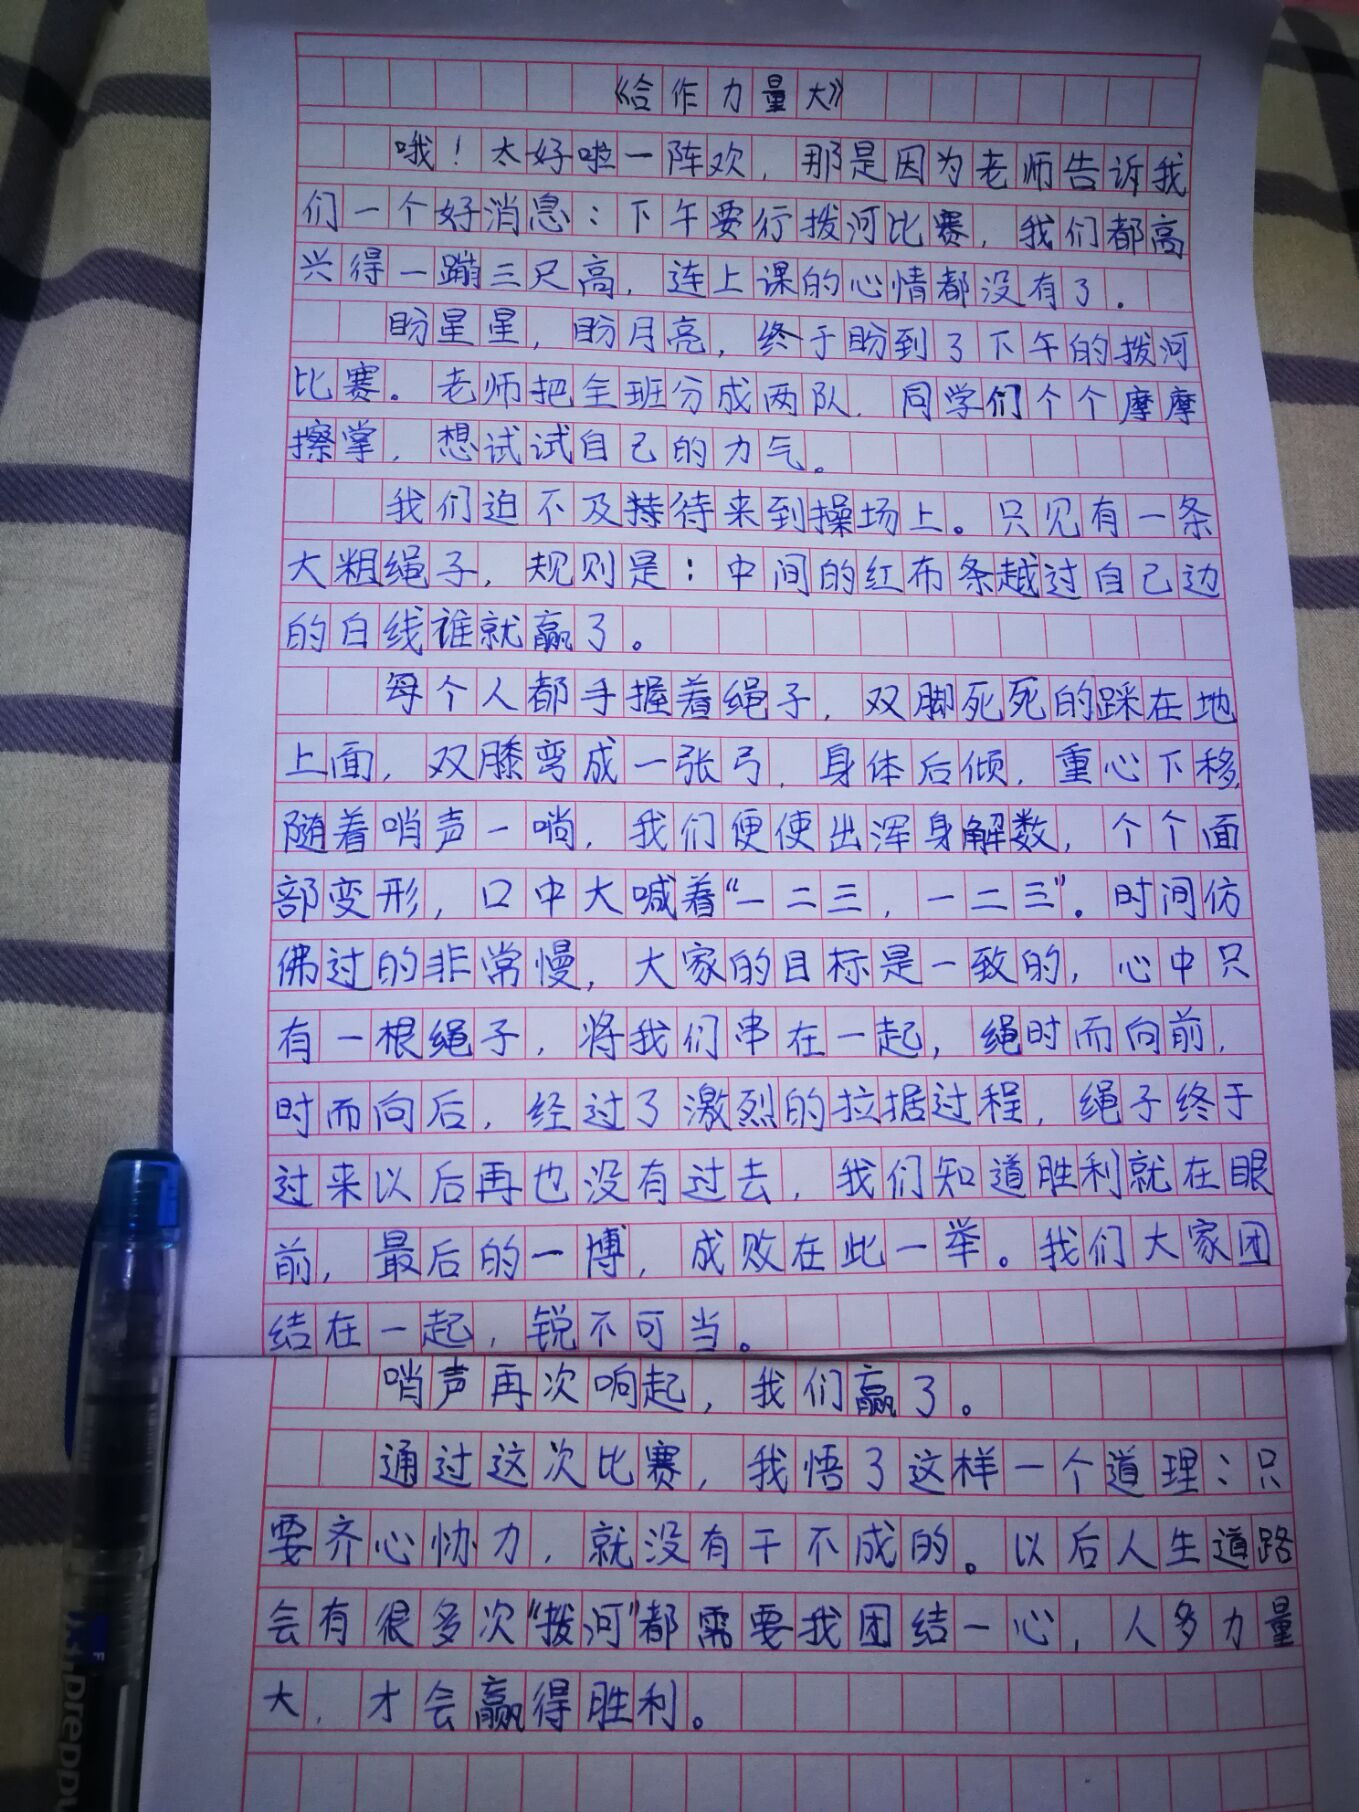 《合作力量大》
哦！太好啦一阵欢，那是因为老师告诉我
们一个好消息：下午要行拨河比赛，我们都高
兴得一蹦三尺高，连上课的心情都没有了．
盼星星，盼月亮，终于盼到了下午的拨河
比赛。老师把全班分成两队，同学们个个摩摩
擦掌，想试试自己的力气。
我们迫不及待来到操场上。只见有一条
大粗绳子，规则是：中间的红布条越过自己边
的白线谁就赢了。
每个人都手握着绳子，双脚死死的踩在地
上面，双膝弯成一张弓，身体后倾，重心下移，
随着哨声一响，我们便使出浑身解数，个个面
部变形，口中大喊着“一二三，一二三”。时间仿
佛过的非常慢，大家的目标是一致的，心中只
有一根绳子，将我们串在一起，绳时而向前，
时而向后，经过了激烈的拉据过程，绳子终于
过来以后再也没有过去，我们知道胜利就在眼
前，最后的一博，成败在此一举。我们大家团
结在一起，锐不可当。
哨声再次响起，我们赢了。
通过这次比赛，我悟了这样一个道理：只
要齐心协力，就没有干不成的。以后人生道路
会有很多次“拨河”都需要我团结一心，人多力量
大，才会赢得胜利。